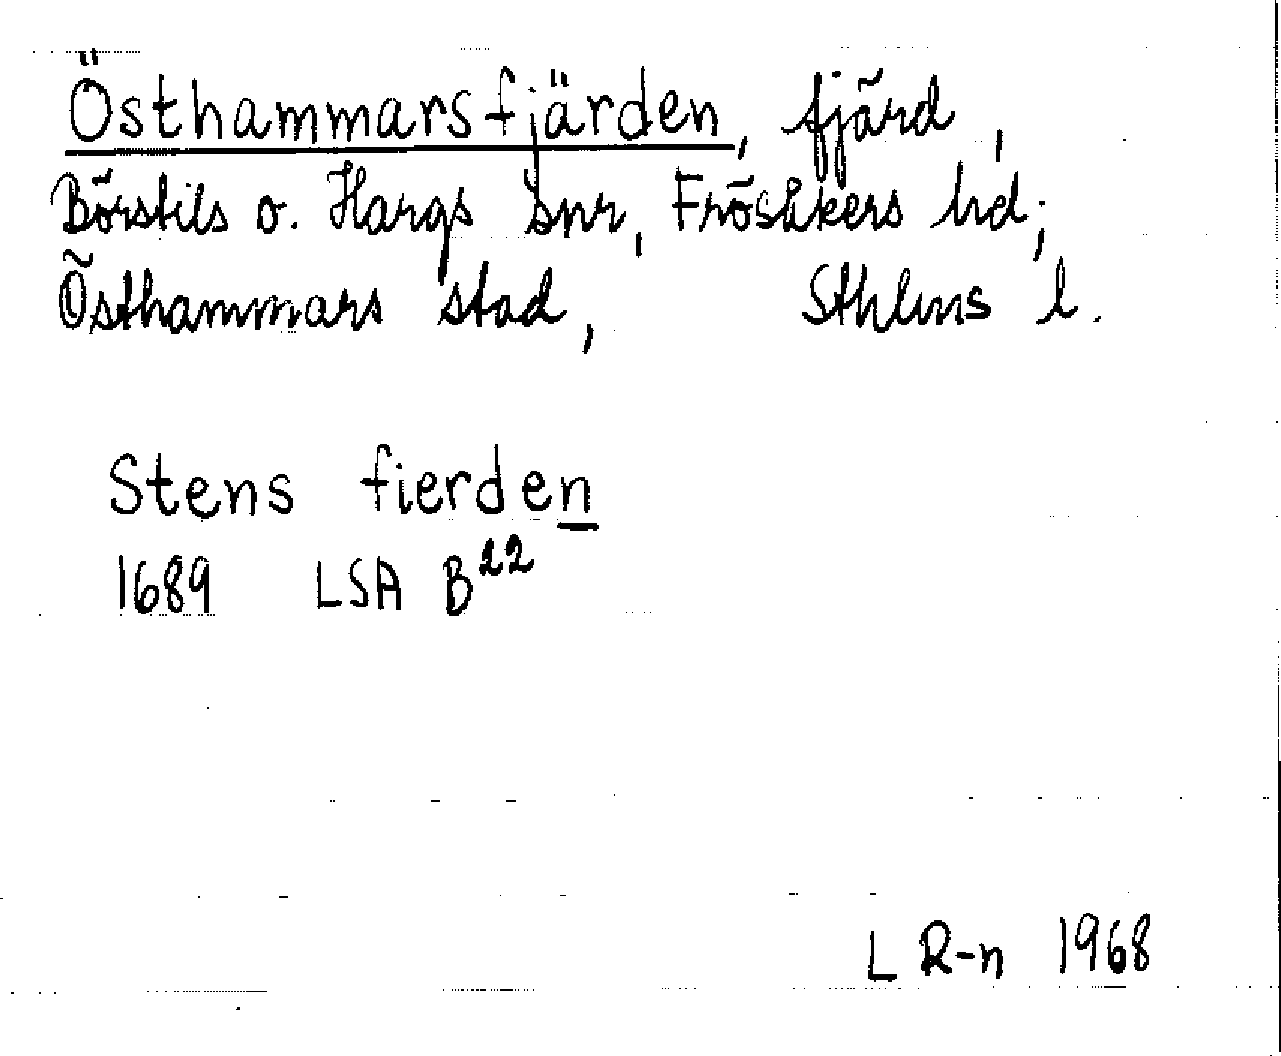 Östhammarsfjärden, fjärd,
Börstils o. Hargs snr, Frösåkers hd;
Östhammars stad, Sthlms l.
Stens fierden
1689 LSA B22
L R-n 1968